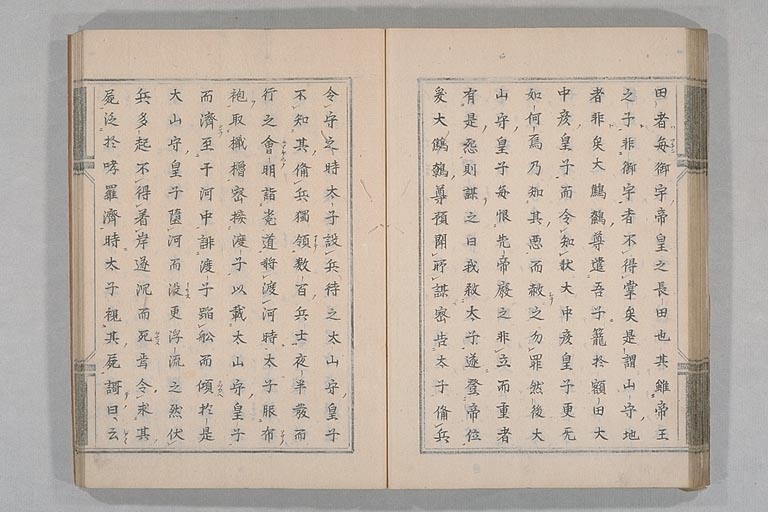 田者毎御宇帝皇之屯田也其雖帝王
之子非御宇者不得掌矣是謂山守地
者非矣大鷦鷯尊遣吾子籠於額田大
中彦皇子而令知狀大中彦皇子更无
如何焉乃知其悪而赦之勿罪然後大
山守皇子毎恨先帝廢之非立而重有
有是怨則謀之曰我殺太子遂登帝位
爰大鷦鷯尊預聞所謀密告太子備兵
令守之時太子設兵待之大山守皇子
不知其備兵獨領數百兵士夜半發而
行之會明詣菟道將渡河時太子服布
袍取檝櫓密接渡子以載大山守皇子
而濟至于河中誂渡子蹈舩而傾於是
大山守皇子墮河而沒更浮流之然伏
兵多起不得著岸遂沉而死焉令求其
屍泛於哮羅濟時太子視其屍謌曰云